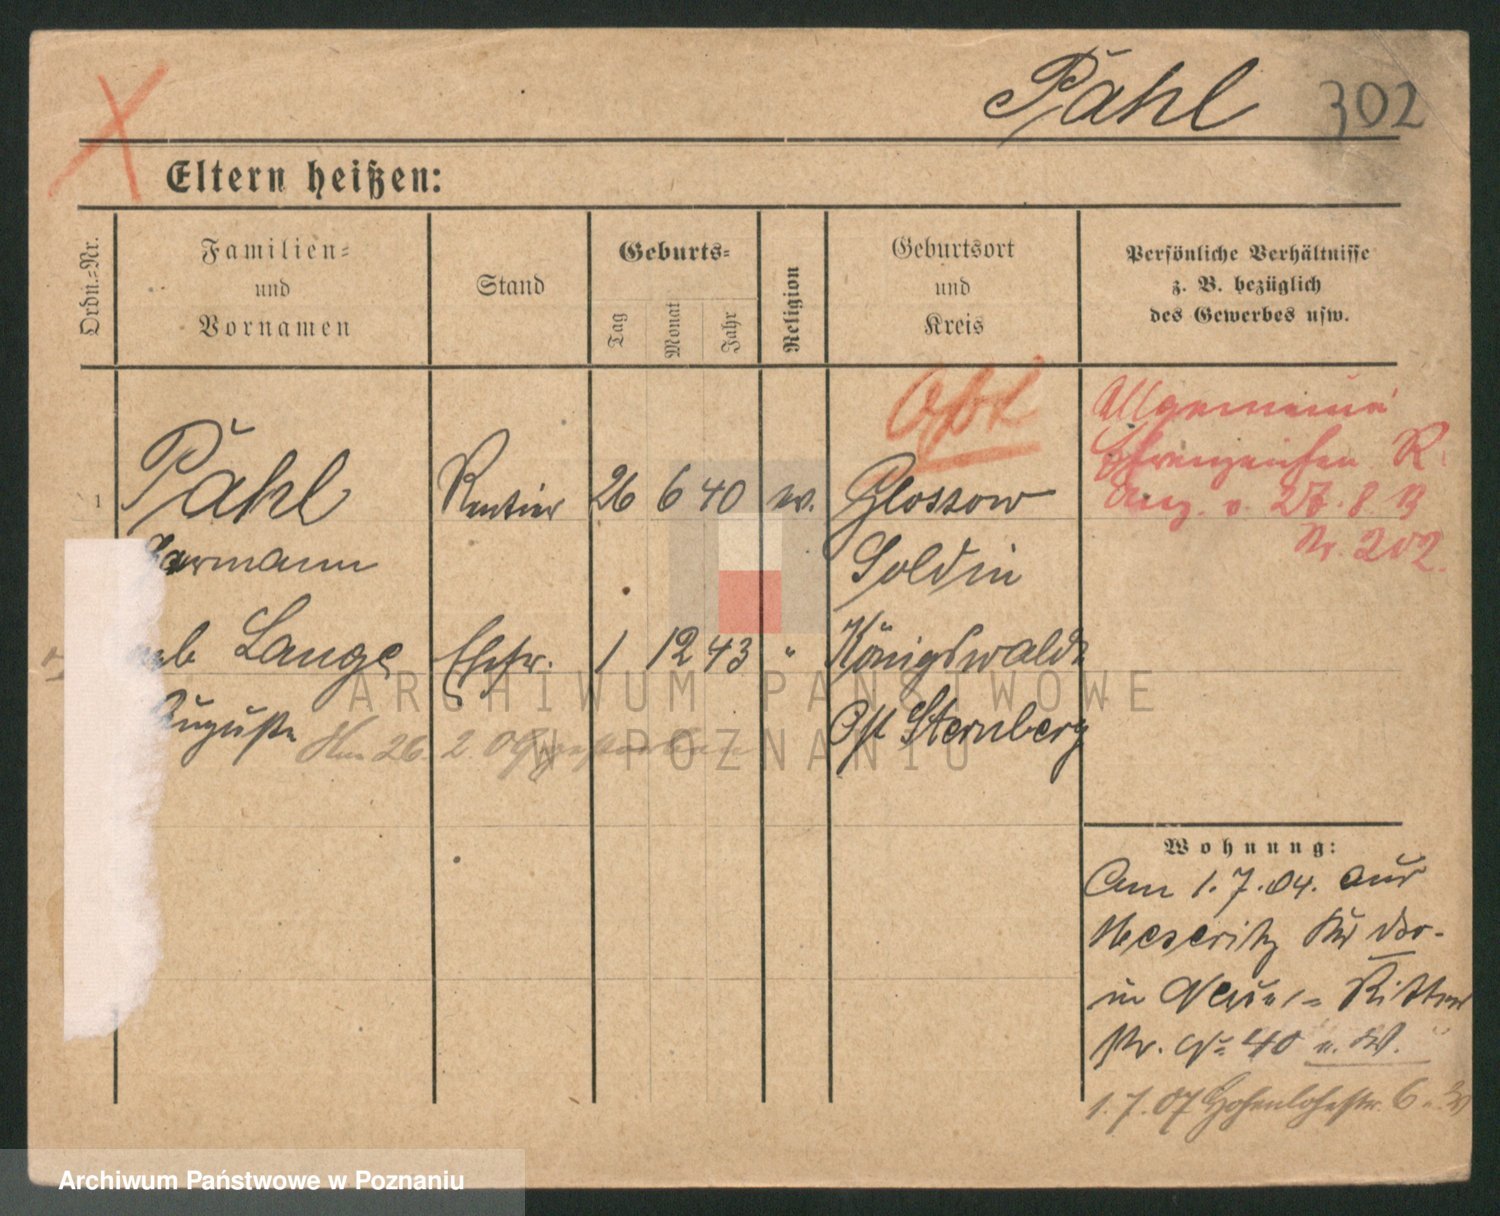 Pahl 302
Eltern heißen:
Ordn.=Nr.
Familien=
und
Vornamen
Stand
Geburts=
Tag
Monat
Jahr
Religion
Geburtsort
und
Kreis
Persönliche Verhältnisse
z. B. bezüglich
des Gewerbes usw.
1
Pahl
Hermann
Rentier
26 6 40
Glossow
Soldin
Allgemeine
R.
Anz. v. 27. 8. 13
Nr. 202.
geb Lange
Auguste
Ehefr.
1 12 43
"
Königswalde
Ost Sternberg
Am 26. 2. 09 gestorben
Wohnung:
Am 1. 7. 04. aus
Meseritz
in Neue Ritter
str. No 40
1. 7. 07 Hohenlohestr. 6
ARCHIWUM PAŃSTWOWE
W POZNANIU
Archiwum Państwowe w Poznaniu